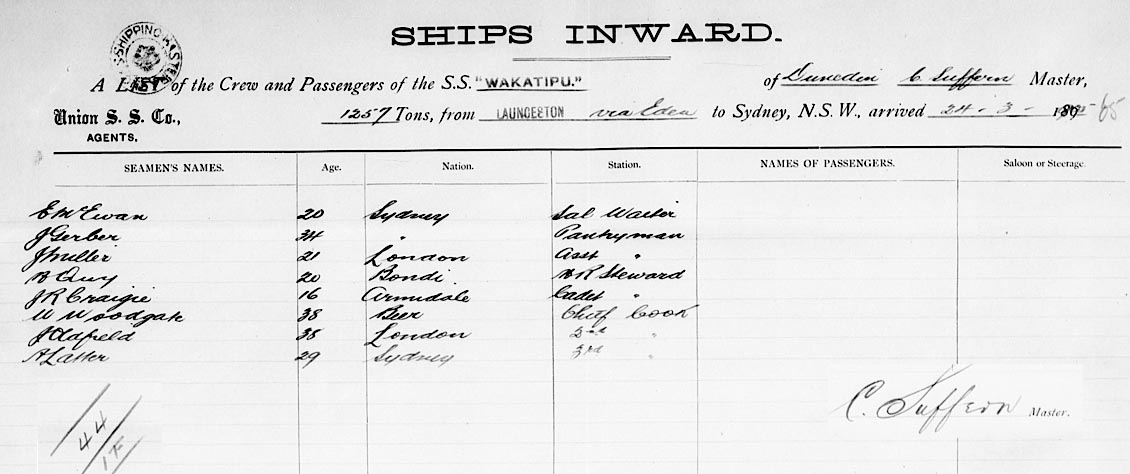 SHIPPING MASTER
SHIPS INWARD.
A LIST of the Crew and Passengers of the S.S. "WAKATIPU." of Dunedin C Suffern Master,
Union S. S. Co., 1257 Tons, from LAUNCESTON via Eden to Sydney, N.S.W., arrived 24-3-
AGENTS.
SEAMEN'S NAMES. Age. Nation. Station. NAMES OF PASSENGERS. Saloon or Steerage.
E McEwan 20 Sydney Sal Waiter
J Gerber 34 " Pantryman
J Miller 21 London Asst "
B Quy 20 Bondi BR Steward
J R Craigie 16 Armidale Cadet "
W Woodgate 38 Beer Chief Cook
J Oldfield 38 London 2nd "
A Latter 29 Sydney 3rd "
C. Suffern Master.
44